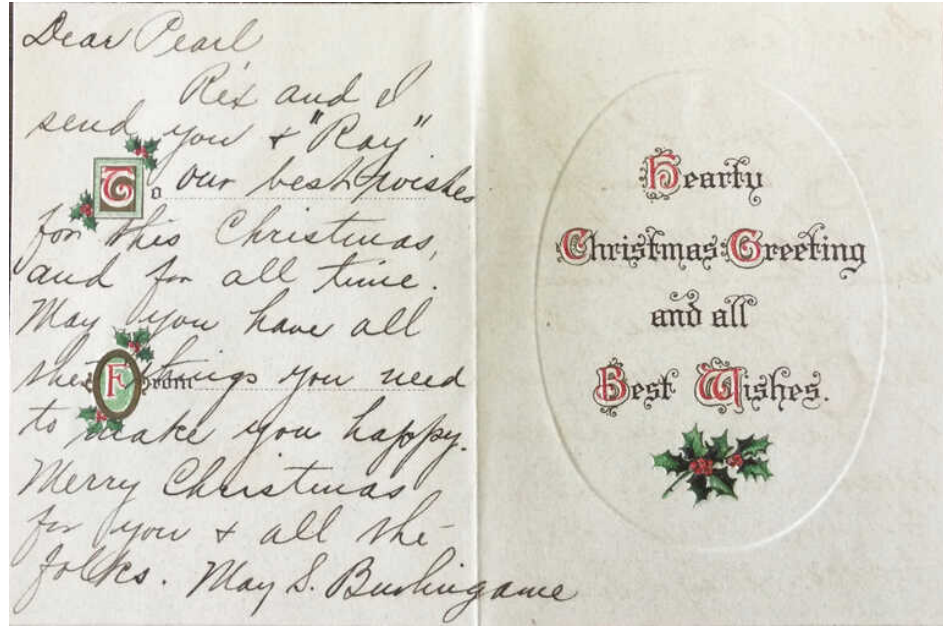 Dear Pearl
Rex and I
send you & "Ray"
To our best wishes
for this Christmas,
and for all time.
May you have all
the From things you need
to make you happy.
Merry Christmas
for you & all the
folks. May S. Burlingame
Hearty
Christmas Greeting
and all
Best Wishes.